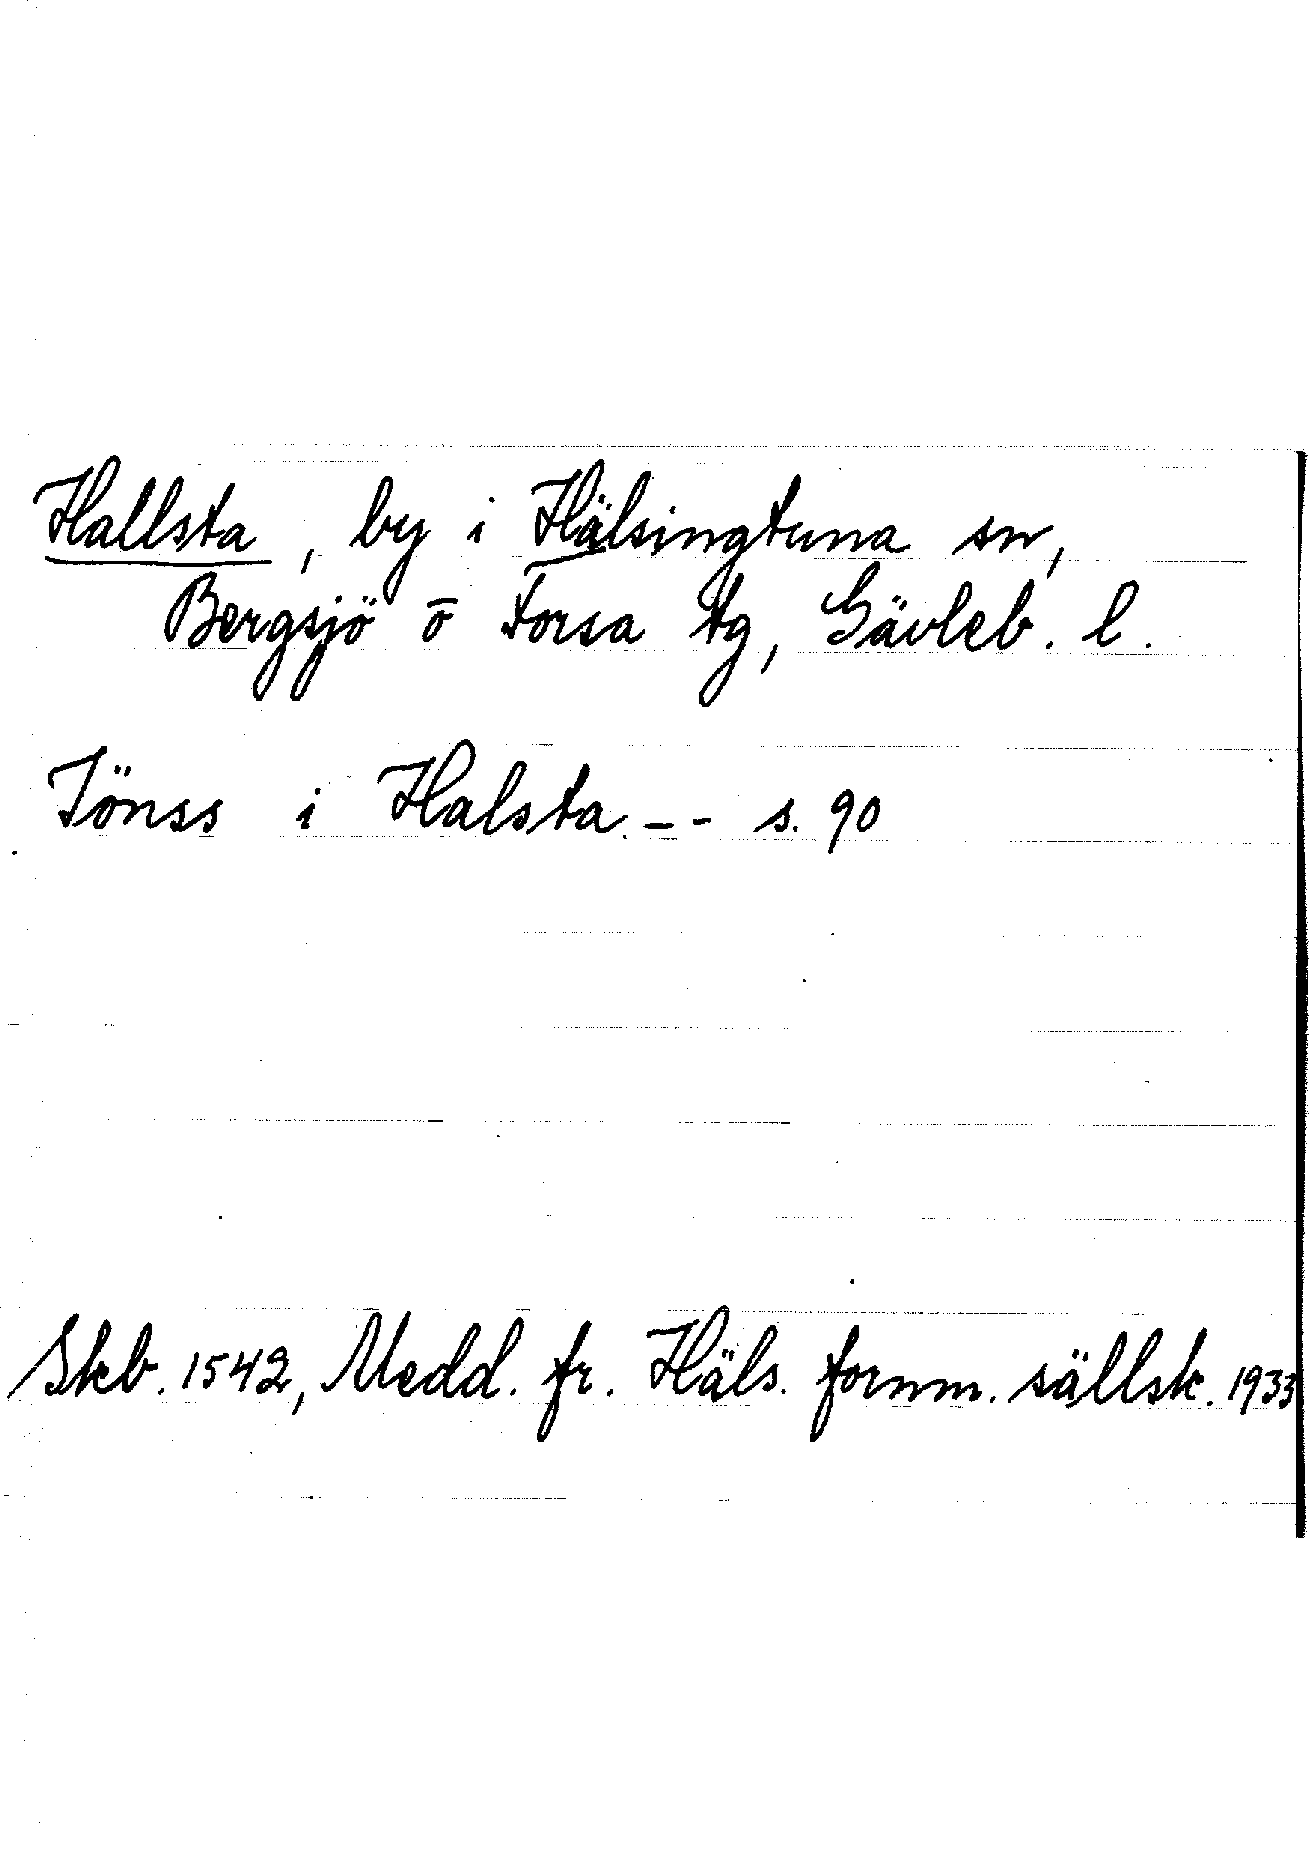 Hallsta, by i Hälsingtuna sn,
Bergsjö o Forsa tg, Gävleb. l.
Jönss i Halsta -- s. 90
Skb. 1542, Medd. fr. Häls. fornm. sällsk. 1933